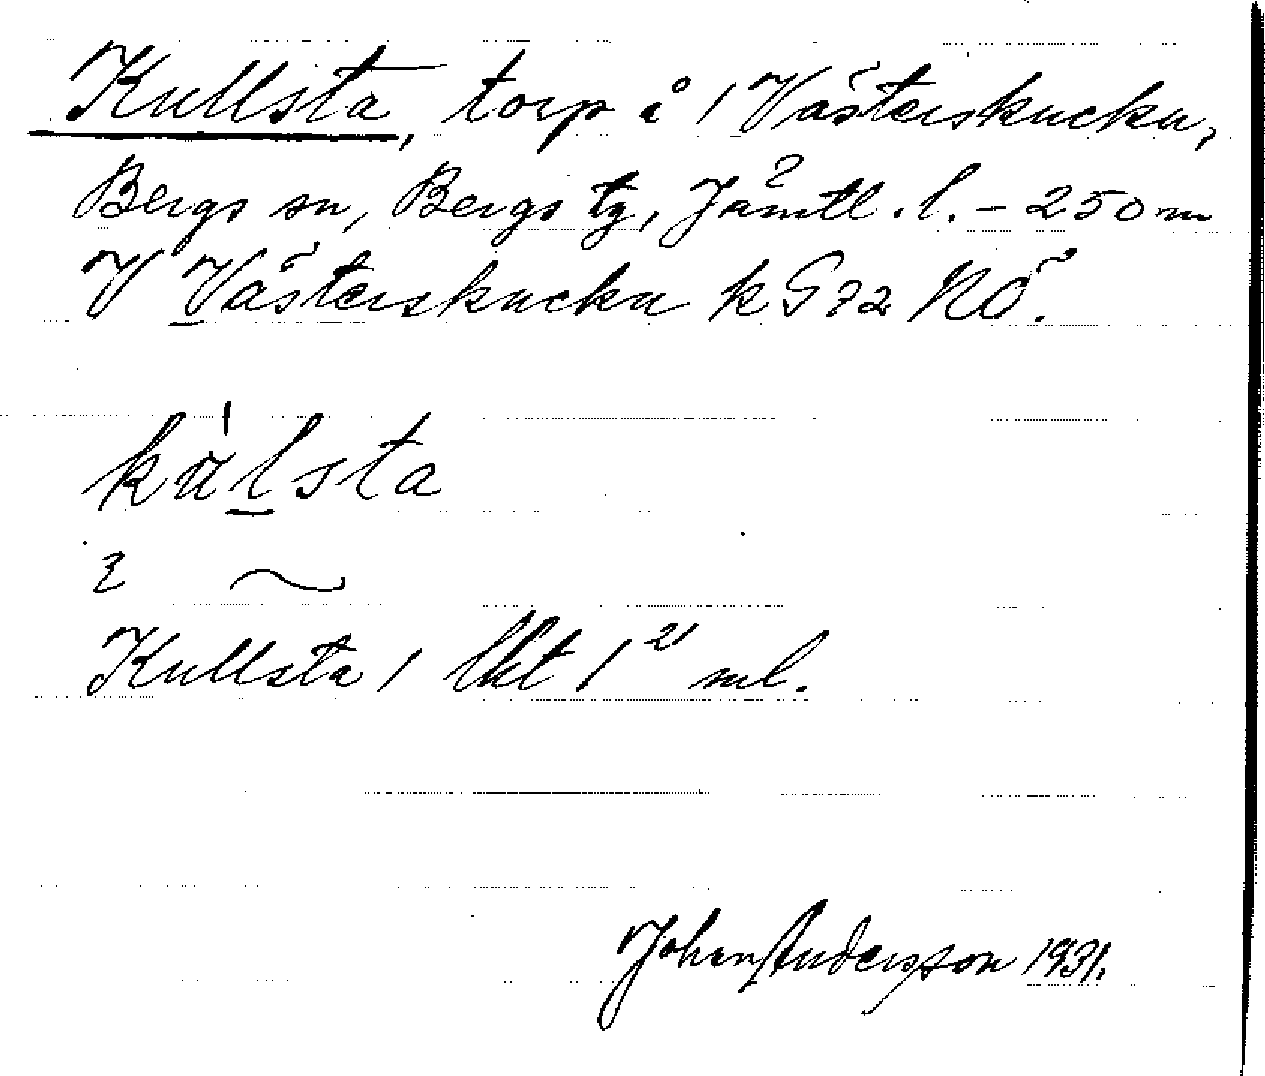 Kullsta, torp å 1 Västerskucku,
Bergs sn, Bergs tg, Jämtl. l. - 250 m
V Västerskucku k G 72 NÖ.
kùlsta
~
Kullsta 1 lkt 1²¹ ml.
Johan Andersson 1931.